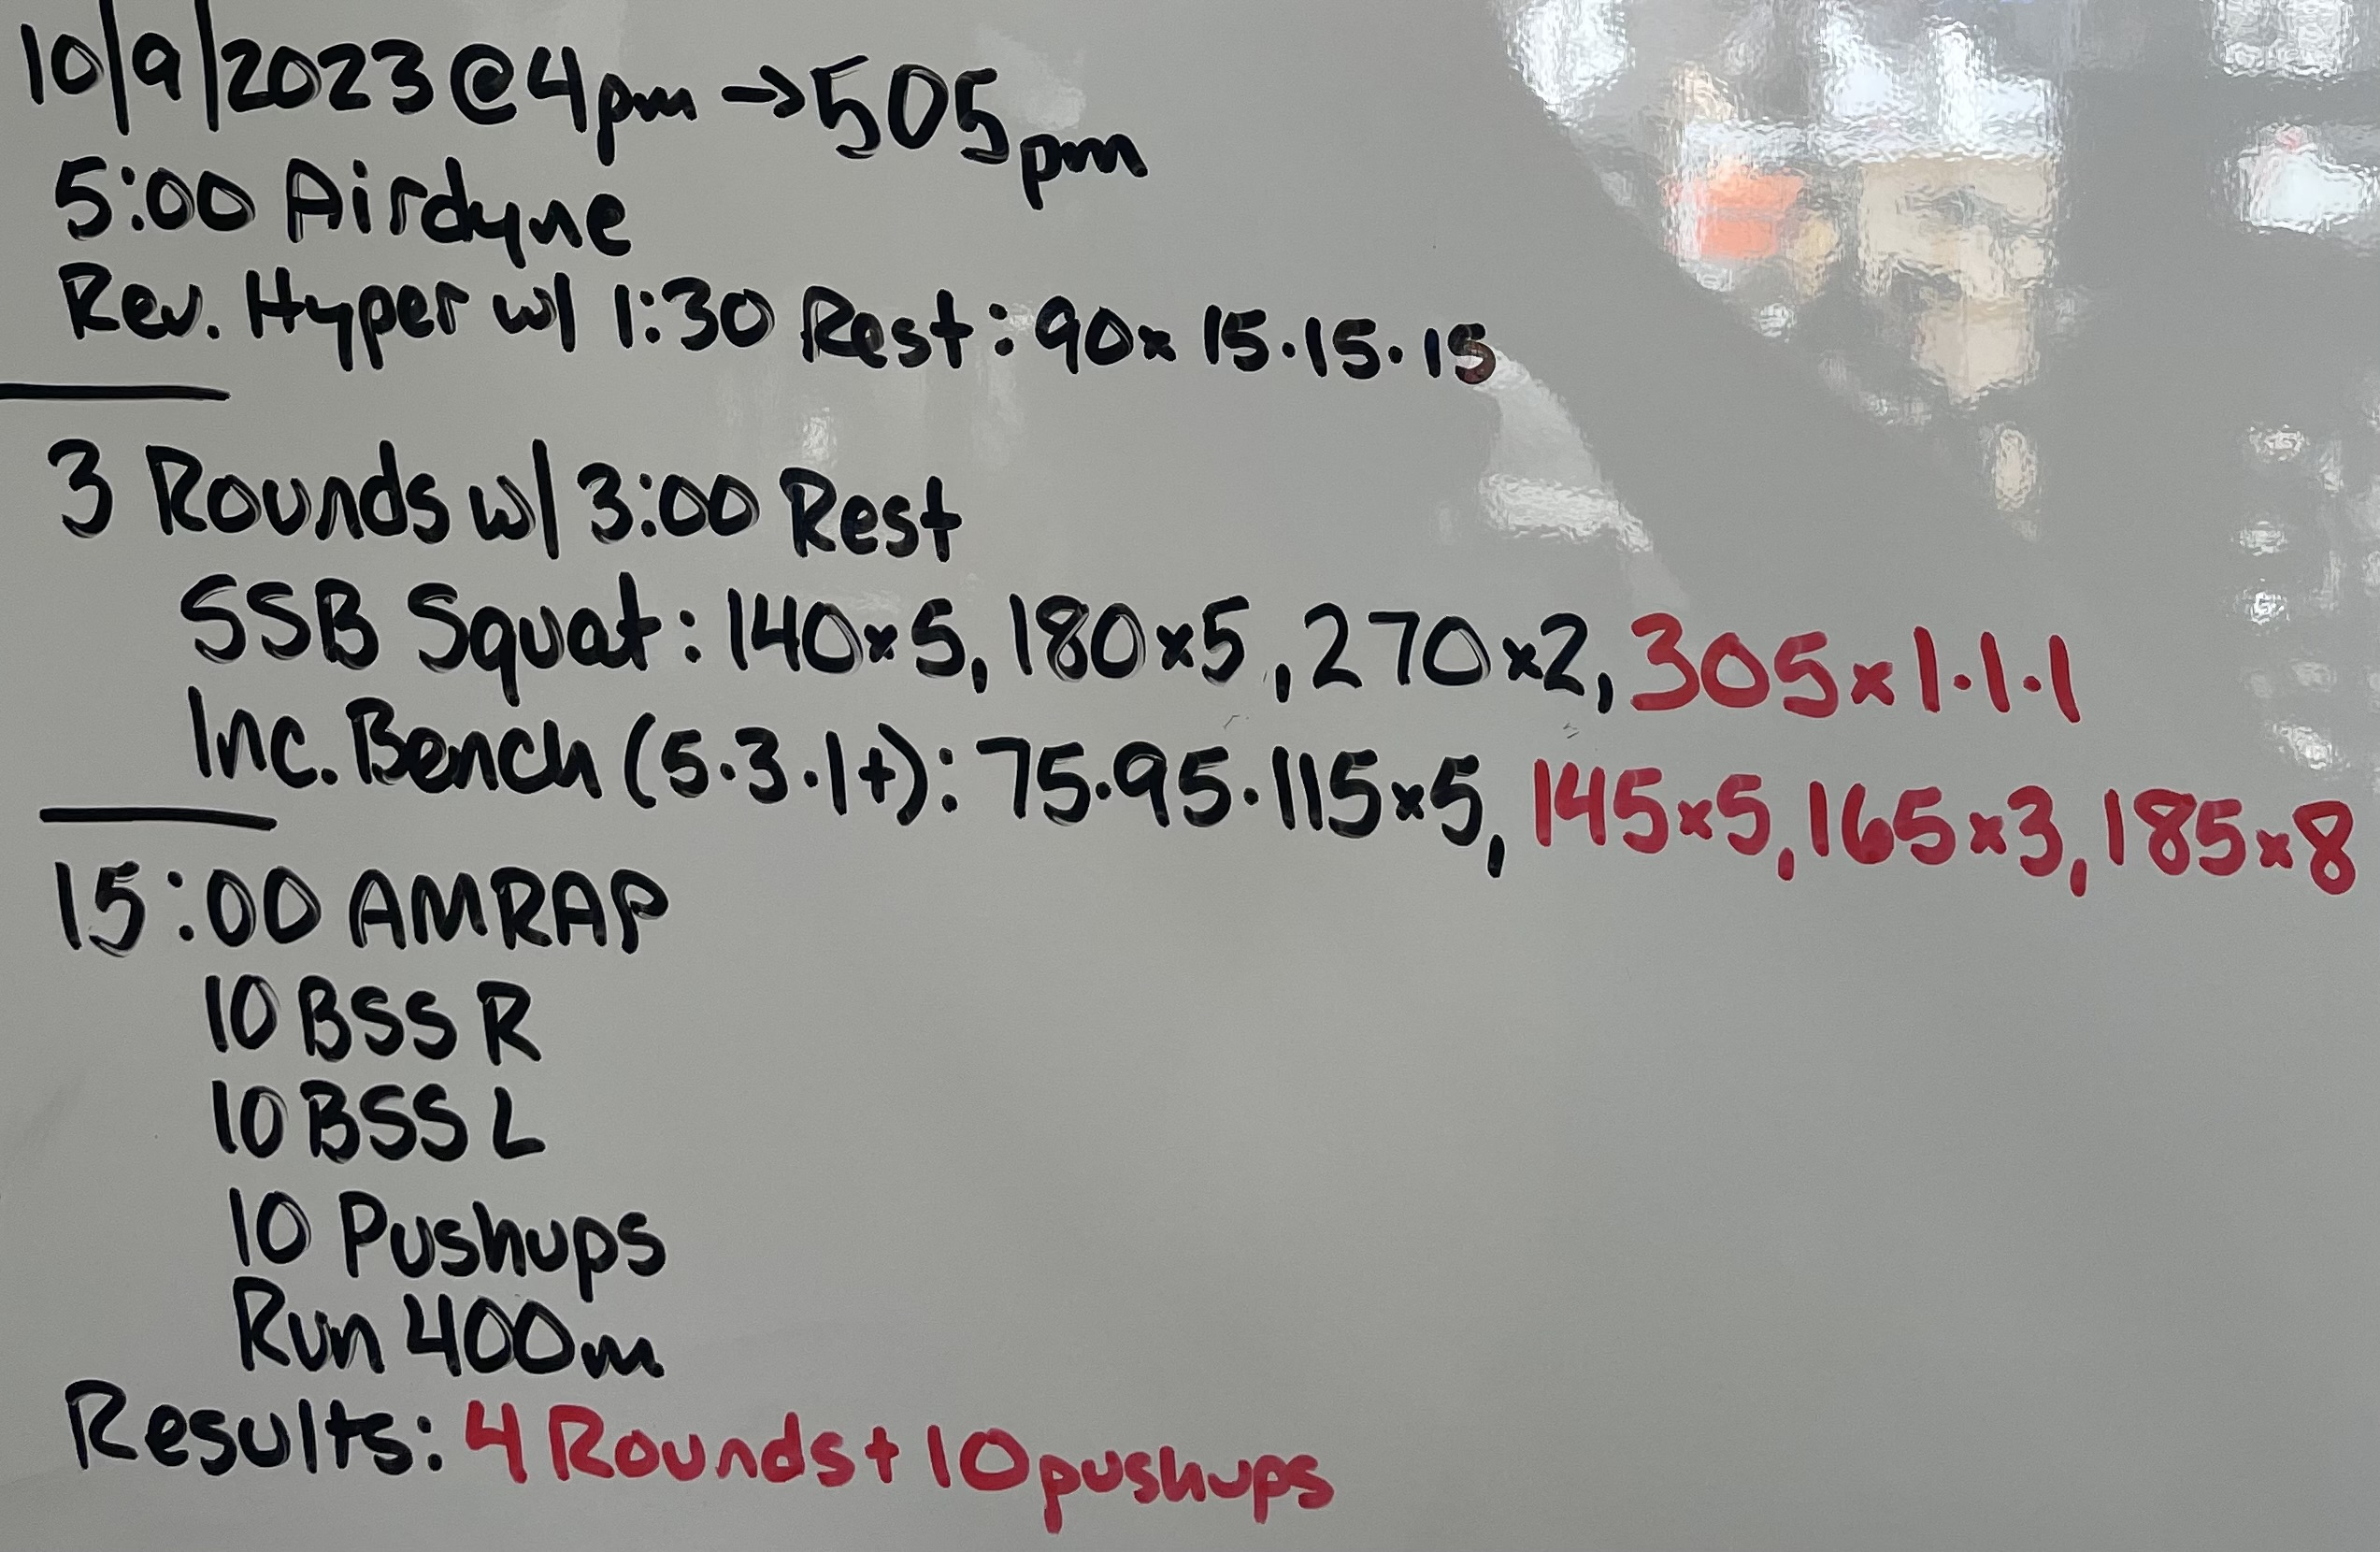 10/9/2023 @ 4pm → 505pm
5:00 Airdyne
Rev. Hyper w/ 1:30 Rest: 90x 15·15·15
3 Rounds w/ 3:00 Rest
SSB Squat: 140x5, 180x5, 270x2, 305x1·1·1
Inc. Bench (5·3·1+): 75·95·115x5, 145x5, 165x3, 185x8
15:00 AMRAP
10 BSS R
10 BSS L
10 Pushups
Run 400m
Results: 4 Rounds + 10 pushups